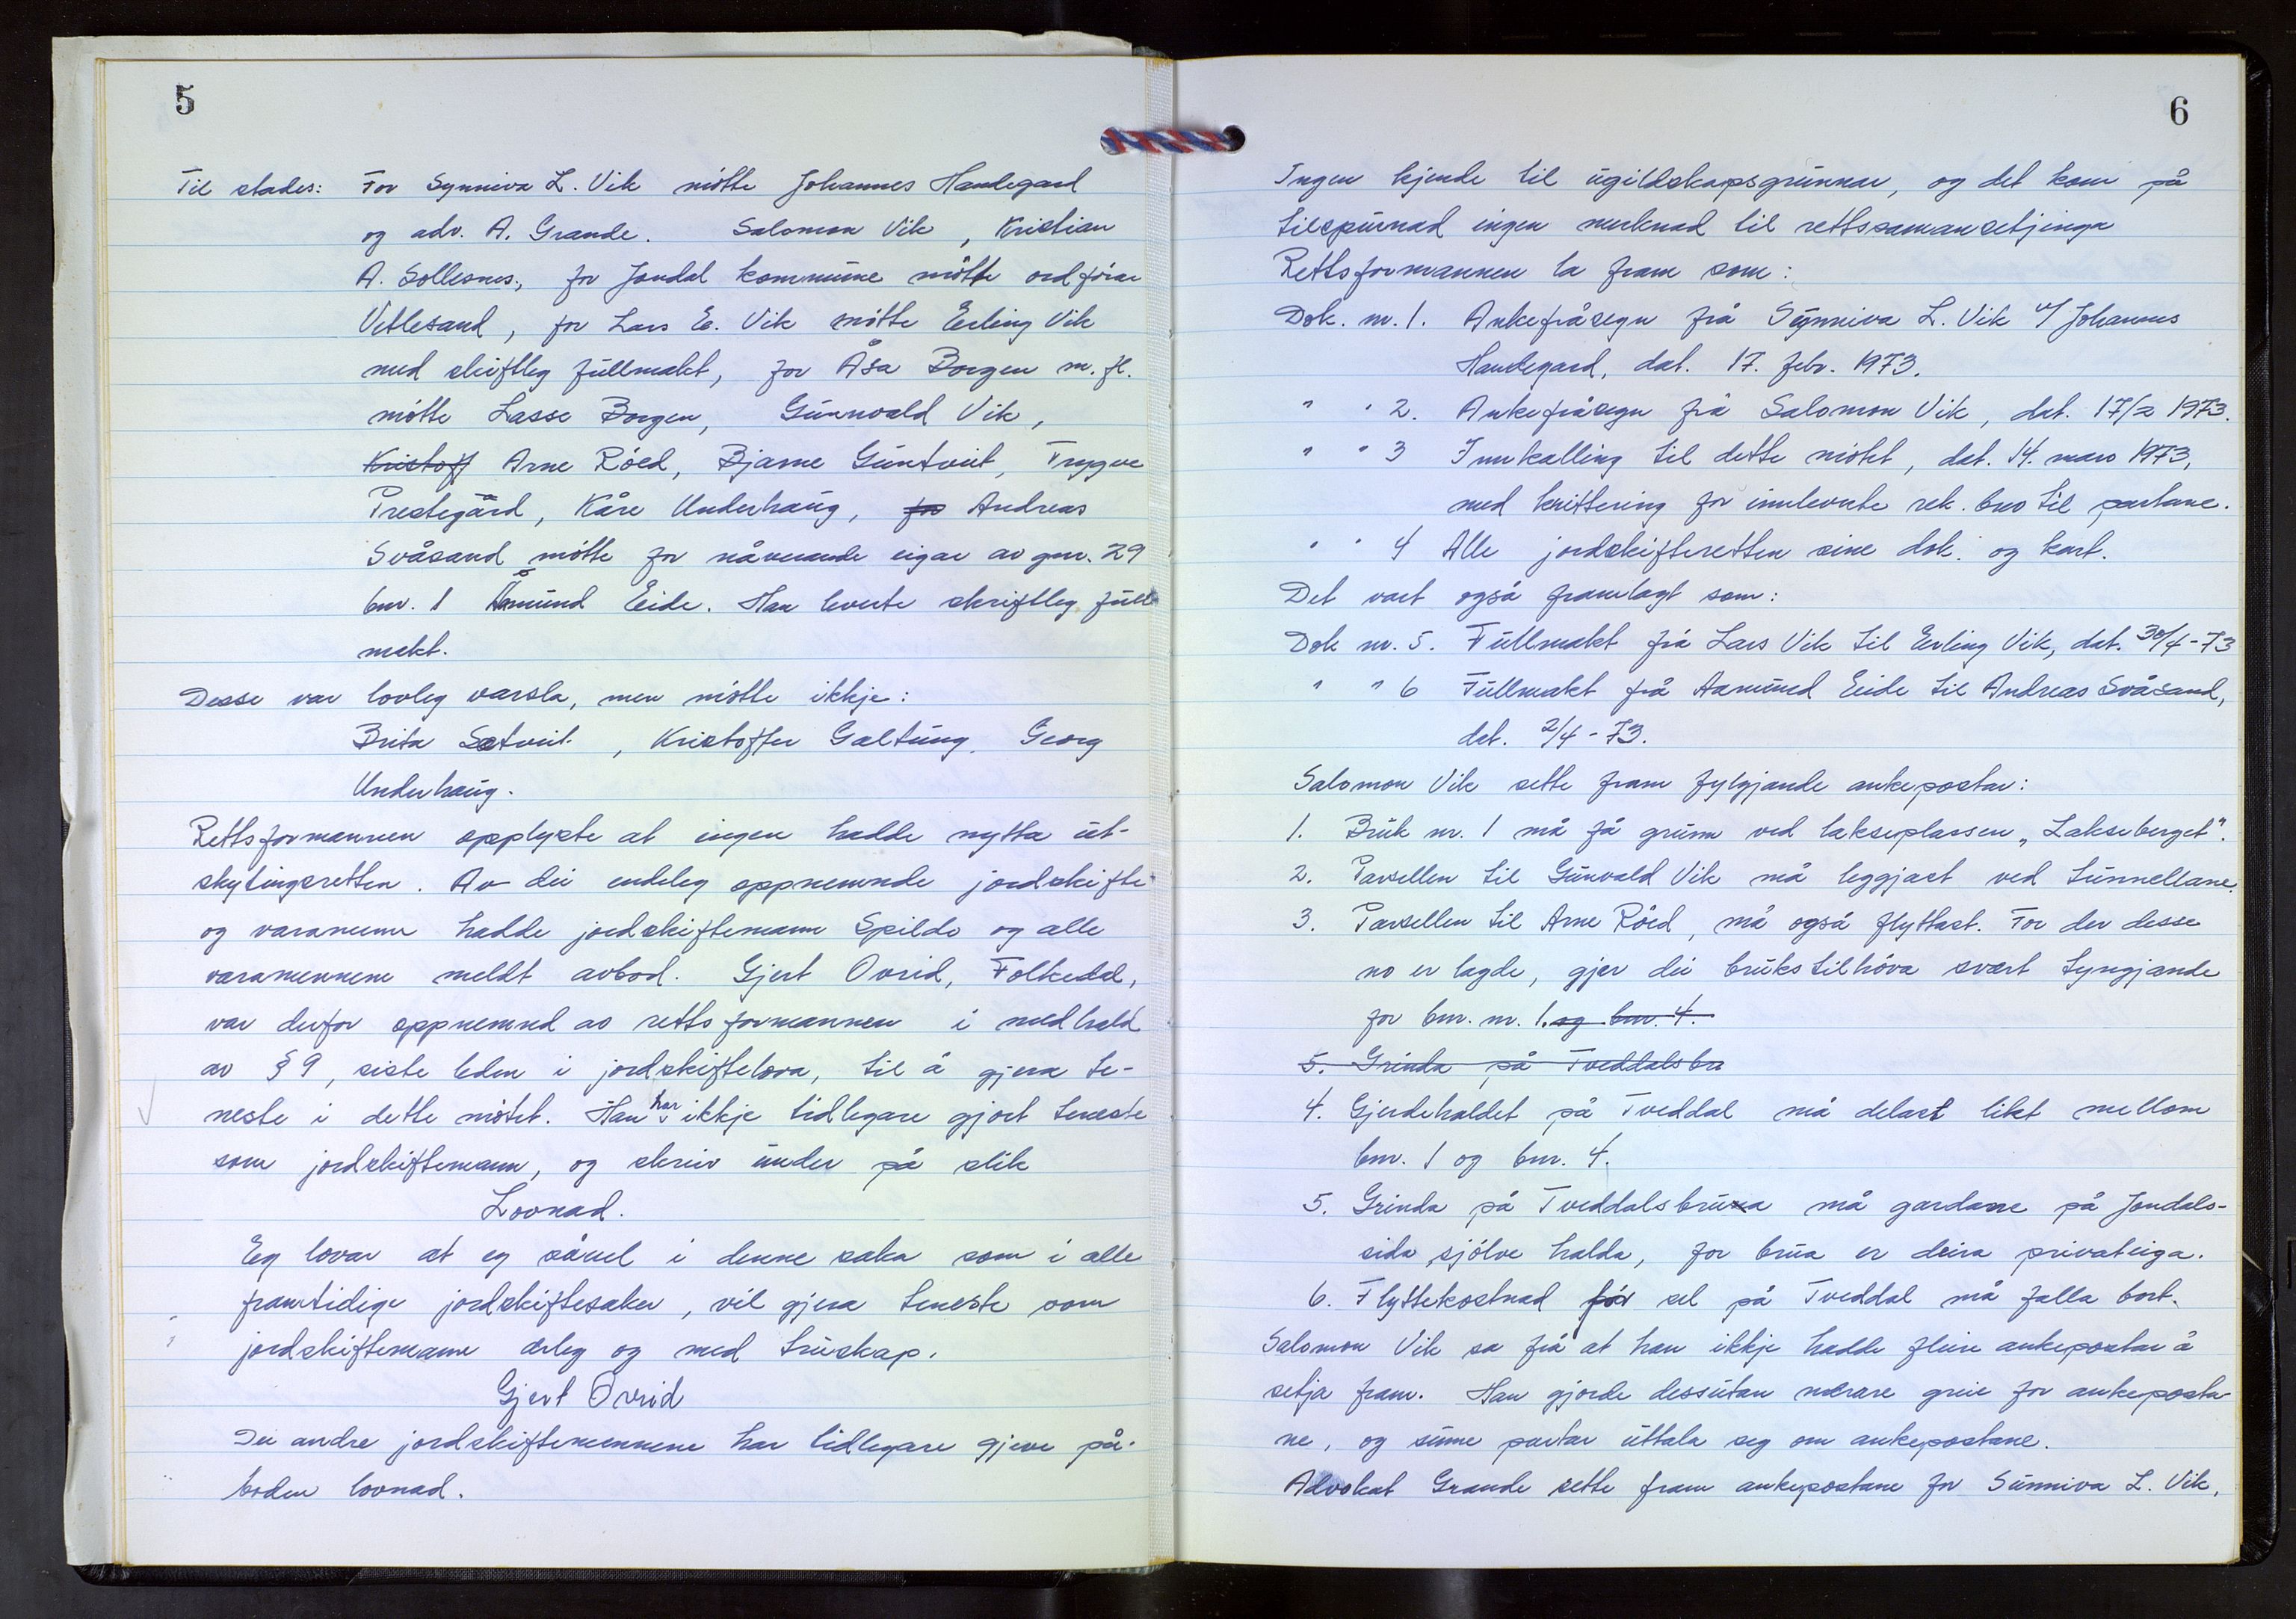 5
Til stades: For Synniva L. Vik møtte Johannes Handegard
og adv. A. Grande. Salomon Vik, Kristian
A. Sollesnes, for Jondal kommune møtte ordførar
Vetlesand, for Lars E. Vik møtte Erling Vik
med skiftleg fullmakt, for Åsa Borgen m. fl.
møtte Lasse Borgen, Gunnvald Vik,
Kristoff Arne Røed, Bjarne Guntveit, Trygve
Prestegård, Kåre Underhaug, for Andreas
Svåsand møtte for nåverande eigar av gnr. 29
bnr. 1 Åmund Eide. Han leverte skriftleg full
makt.
Desse var lovleg varsla, men møtte ikkje:
Brita Sætveit, Kristoffer Galtung, Georg
Underhaug.
Rettsformannen opplyste at ingen hadde nytta ut-
skytingsretten. Av dei endeleg oppnemnde jordskifte-
og varamenn hadde jordskiftemann Spildo og alle
varamennene meldt avbod. Gjert Ovrid, Folkedal,
var derfor oppnemnd av rettsformannen i medhald
av § 9, siste leden i jordskiftelova, til å gjera te-
neste i dette møtet. Han har ikkje tidlegare gjort teneste
som jordskiftemann, og skreiv under på slik
Lovnad.
Eg lovar at eg såvel i denne saka som i alle
framtidige jordskiftesaker, vil gjera teneste som
jordskiftemann ærleg og med truskap.
Gjert Ovrid
Dei andre jordskiftemennene har tidlegare gjeve på-
boden lovnad.
6
Ingen kjende til ugildskapsgrunnar, og det kom på
tilspurnad ingen merknad til rettssamansetjinga
Rettsformannen la fram som:
Dok. nr. 1. Ankefråsegn frå Synniva L. Vik v/ Johannes
Handegard, dat. 17. febr. 1973.
" " 2. Ankefråsegn frå Salomon Vik, dat. 17/2 1973.
" " 3 Innkalling til dette møtet, dat. 14. mars 1973,
med kvittering for innleverte rek. brev til partane.
" " 4 Alle jordskifteretten sine dok. og kart.
Det vart også framlagt som:
Dok nr. 5. Fullmakt frå Lars Vik til Erling Vik, dat. 30/4-73
" " 6 Fullmakt frå Aamund Eide til Andreas Svåsand,
dat. 2/4-73.
Salomon Vik sette fram fylgjande ankepostar:
1. Bruk nr. 1 må få grunn ved lakseplassen „Lakseberget".
2. Parsellen til Gunvald Vik må leggjast ved tunnellane.
3. Parsellen til Arne Røed, må også flyttast. For der desse
no er lagde, gjer dei brukstilhøva svært tyngjande
for bnr. nr. 1. og bnr. 4.
5. Grinda på Tveddalsbru
4. Gjerdehaldet på Tveddal må delast likt mellom
bnr. 1 og bnr. 4.
5. Grinda på Tveddalsbrua må gardane på Jondals-
sida sjølve halda, for brua er deira privateiga.
6. Flyttekostnad før sel på Tveddal må falla bort.
Salomon Vik sa frå at han ikkje hadde fleire ankepostar å
setja fram. Han gjorde dessutan nærare greie for ankeposta-
ne, og sume partar uttala seg om ankepostane.
Advokat Grande sette fram ankepostane for Sunniva L. Vik,